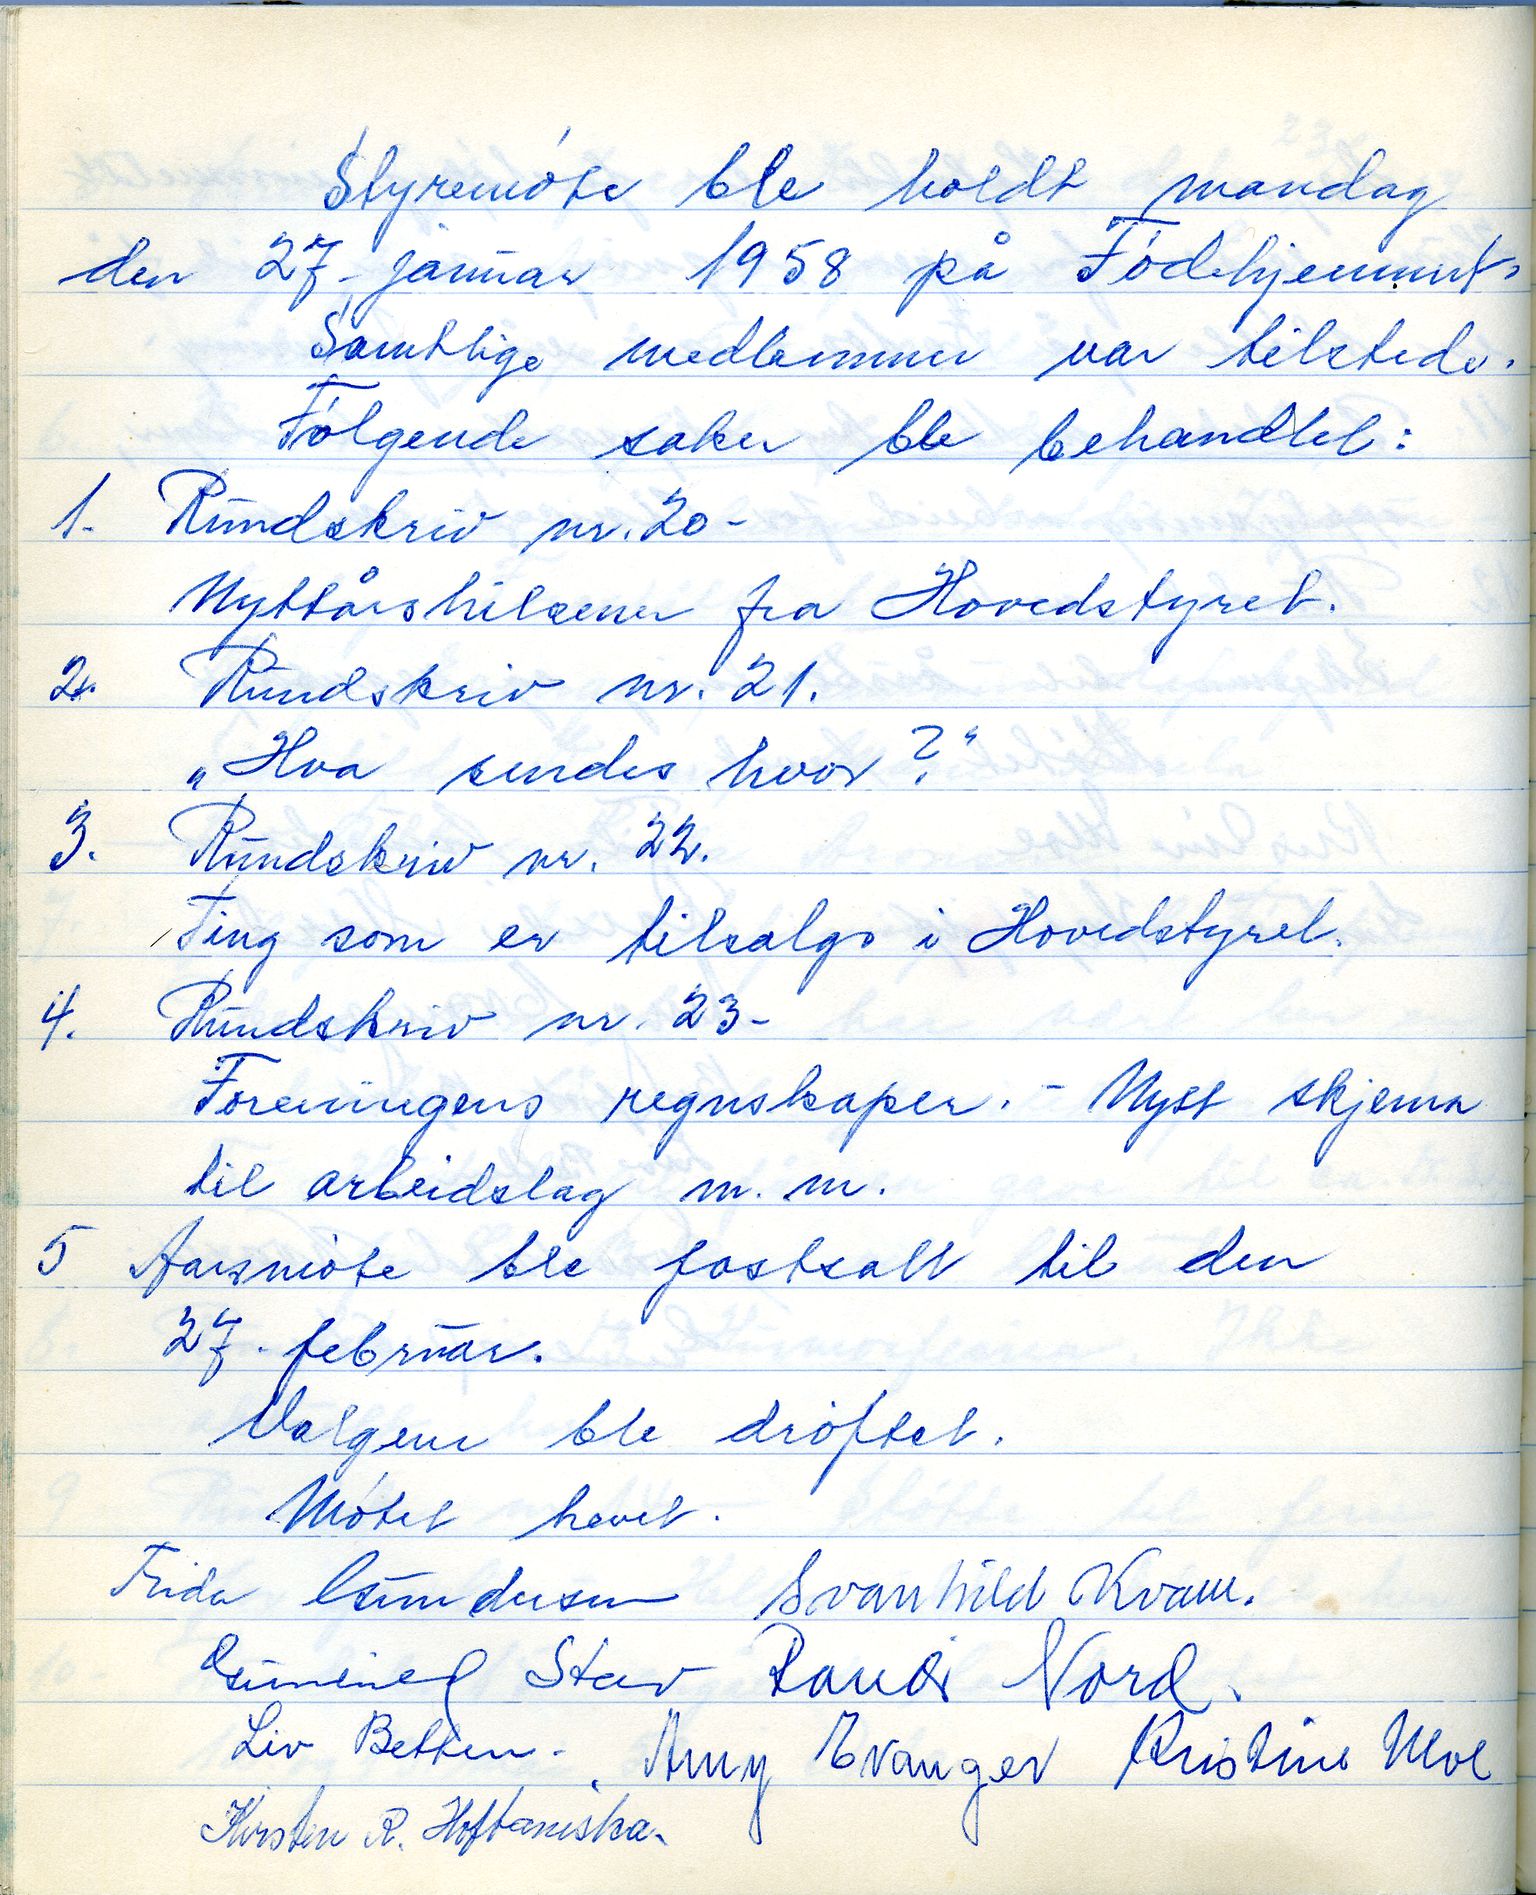 Styremöte ble holdt mandag
den 27. januar 1958 på Födehjemmet.
Samtlige medlemmer var tilstede.
Følgende saker ble behandlet:
1. Rundskriv nr. 20-
Nyttårshilsener fra Hovedstyret.
2. Rundskriv nr. 21.
„Hva sendes hvor?"
3. Rundskriv nr. 22.
Ting som er tilsalgs i Hovedstyret.
4. Rundskriv nr. 23-
Foreningens regnskaper. - Nytt skjema
til arbeidslag m. m.
5 Aarsmöte ble fastsatt til den
27. februar.
Valgene ble dröftet.
Mötet hevet.
Frida Gundersen Svanhild Kvam.
Gunhild Stav Randi Nord.
Liv Betten. Amy Evanger Kristine Moe
Kirsten R.